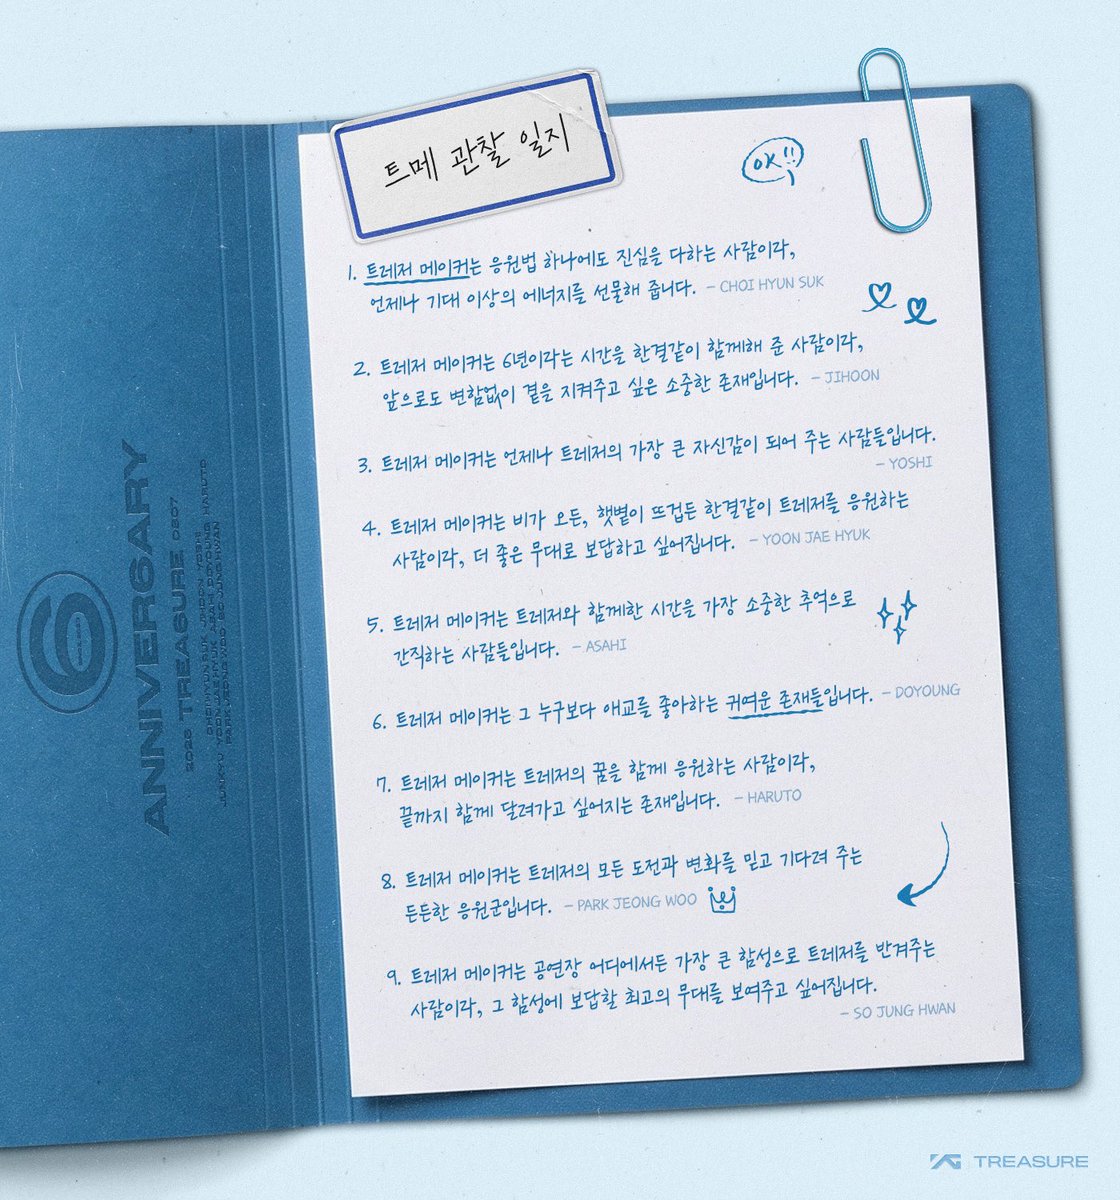 트메 관찰 일지
OK!!
1. 트레저 메이커는 응원법 하나에도 진심을 다하는 사람이라,
언제나 기대 이상의 에너지를 선물해 줍니다. – CHOI HYUN SUK
2. 트레저 메이커는 6년이라는 시간을 한결같이 함께해 준 사람이라,
앞으로도 변함없이 곁을 지켜주고 싶은 소중한 존재입니다. – JIHOON
3. 트레저 메이커는 언제나 트레저의 가장 큰 자신감이 되어 주는 사람들입니다.
– YOSHI
4. 트레저 메이커는 비가 오든, 햇볕이 뜨겁든 한결같이 트레저를 응원하는
사람이라, 더 좋은 무대로 보답하고 싶어집니다. – YOON JAE HYUK
5. 트레저 메이커는 트레저와 함께한 시간을 가장 소중한 추억으로
간직하는 사람들입니다. – ASAHI
6. 트레저 메이커는 그 누구보다 애교를 좋아하는 귀여운 존재들입니다. – DOYOUNG
7. 트레저 메이커는 트레저의 꿈을 함께 응원하는 사람이라,
끝까지 함께 달려가고 싶어지는 존재입니다. – HARUTO
8. 트레저 메이커는 트레저의 모든 도전과 변화를 믿고 기다려 주는
든든한 응원군입니다. – PARK JEONG WOO
9. 트레저 메이커는 공연장 어디에서든 가장 큰 함성으로 트레저를 반겨주는
사람이라, 그 함성에 보답할 최고의 무대를 보여주고 싶어집니다.
– SO JUNG HWAN
6
ANNIVER6ARY
2026 TREASURE 0807
CHOI HYUN SUK JIHOON YOSHI
JUNKYU YOON JAE HYUK ASAHI DOYOUNG HARUTO
PARK JEONG WOO SO JUNG HWAN
YG TREASURE